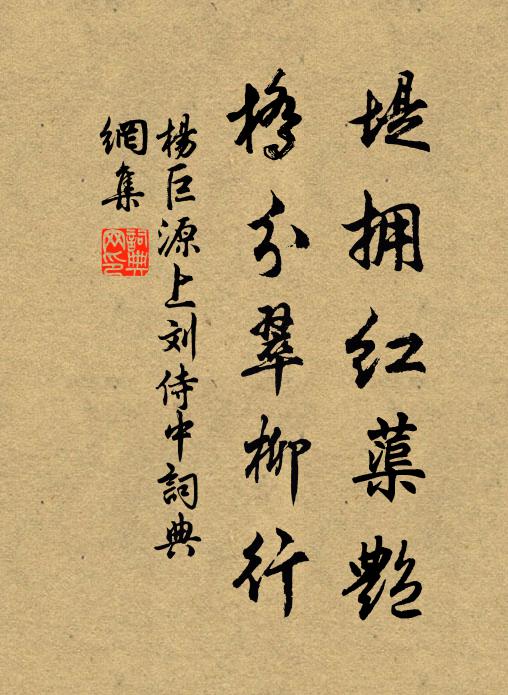 堤拥红蕖艳
桥分翠柳行
杨巨源上刘侍中詞典
網集
詞典網印